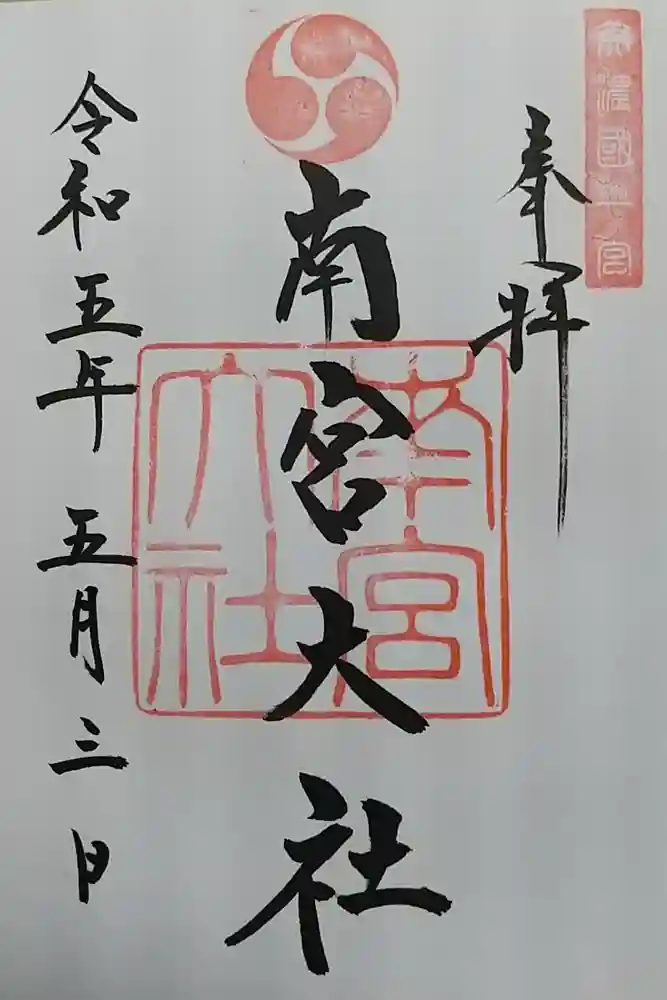 美濃國一宮
奉拝
南宮大社
南宮
大社
令和五年 五月 三日